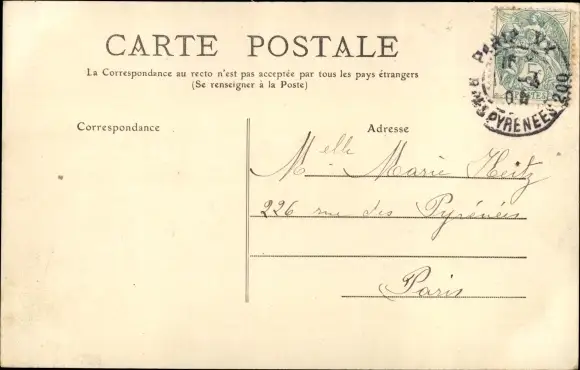 CARTE POSTALE
La Correspondance au recto n'est pas acceptée par tous les pays étrangers
(Se renseigner à la Poste)
PARIS XX
R. DES PYRENEES 200
5
Correspondance
Adresse
Melle Marie Heitz
226 rue des Pyrénées
Paris